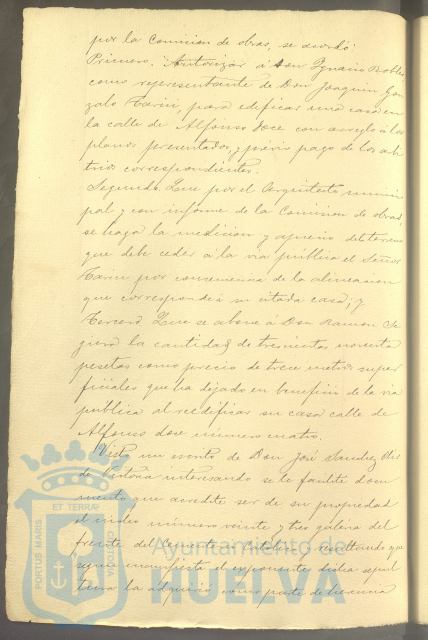 por la Comision de obras, se acordó:
Primero. Autorizar á Don Ygnacio Robles
como representante de Don Joaquin Gon
zalo Tarin, para edificar una casa en
la calle de Alfonso doce con arreglo á los
planos presentados, y previo pago de los arbi
trios correspondientes.
Segundo. Que por el Arquitecto munici
pal y con informe de la Comision de obras,
se haga la medicion y aprecio del terreno
que debe ceder á la via pública el Señor
Tarin por consecuencia de la alineacion
que corresponde á su citada casa; y
Tercero. Que se abone á Don Ramon Se
la cantidad de trescientas noventa
pesetas como precio de trece metros super
ficiales que ha dejado en beneficio de la via
pública al reedificar su casa calle de
Alfonso doce número cuatro.
Visto un escrito de Don José Sanchez
de interesando se le facilite docu
mento que acredite ser de su propiedad
el número veinte y tres galera del
frente del Cementerio Católico, y resultando que
segun manifiesta el exponente dicha sepul
tura la adquirió como parte de
PORTUS MARIS ET TERRAE CUSTODIA
Ayuntamiento de
HUELVA